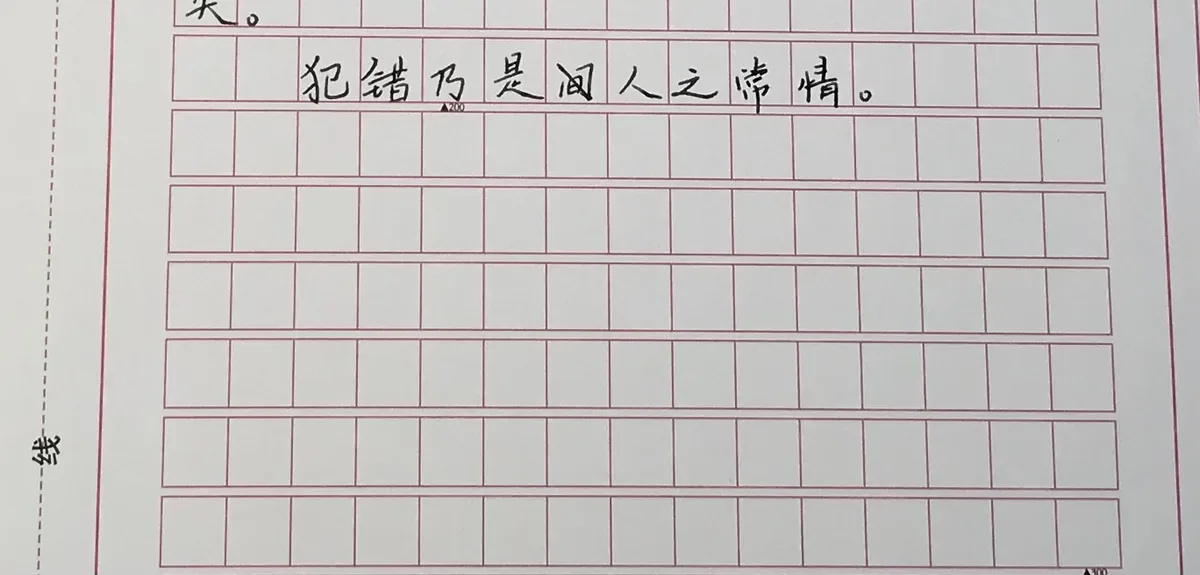 犯错乃是间人之常情。
▲200
线